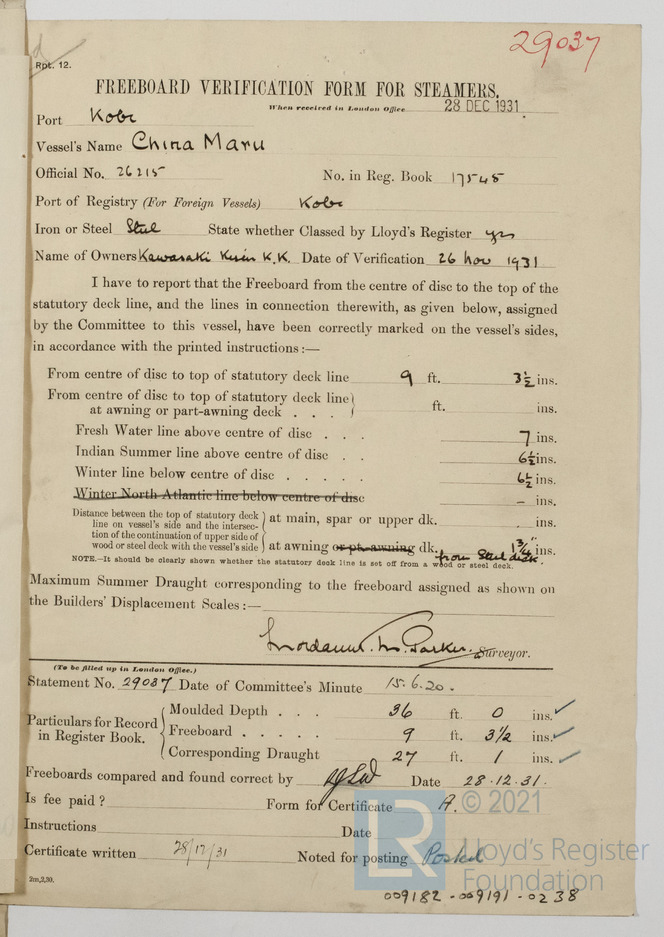 29037
Rpt. 12.
FREEBOARD VERIFICATION FORM FOR STEAMERS.
When received in London Office 28 DEC 1931
Port Kobe
Vessel's Name China Maru
Official No. 26215 No. in Reg. Book 17545
Port of Registry (For Foreign Vessels) Kobe
Iron or Steel Steel State whether Classed by Lloyd's Register yes
Name of Owners Kawasaki Kisen K.K. Date of Verification 26 Nov 1931
I have to report that the Freeboard from the centre of disc to the top of the
statutory deck line, and the lines in connection therewith, as given below, assigned
by the Committee to this vessel, have been correctly marked on the vessel's sides,
in accordance with the printed instructions:—
From centre of disc to top of statutory deck line 9 ft. 3½ ins.
From centre of disc to top of statutory deck line
at awning or part-awning deck . . . ft. ins.
Fresh Water line above centre of disc . . . 7 ins.
Indian Summer line above centre of disc . . 6½ ins.
Winter line below centre of disc . . . . . 6½ ins.
Winter North Atlantic line below centre of disc – ins.
Distance between the top of statutory deck
line on vessel's side and the intersec-
tion of the continuation of upper side of
wood or steel deck with the vessel's side
at main, spar or upper dk. ins.
at awning or pt. awning dk. 1¾ ins.
from Steel deck.
NOTE.—It should be clearly shown whether the statutory deck line is set off from a wood or steel deck.
Maximum Summer Draught corresponding to the freeboard assigned as shown on
the Builders' Displacement Scales:—
Parker. Surveyor.
(To be filled up in London Office.)
Statement No. 29037 Date of Committee's Minute 15.6.20.
Particulars for Record
in Register Book.
Moulded Depth . . . 36 ft. 0 ins.
Freeboard . . . . . 9 ft. 3½ ins.
Corresponding Draught 27 ft. 1 ins.
Freeboards compared and found correct by Date 28.12.31.
Is fee paid? Form for Certificate A.
Instructions Date
Certificate written 28/12/31 Noted for posting Posted
2m,2,30.
LR © 2021
Lloyd's Register
Foundation
009182-009191-0238